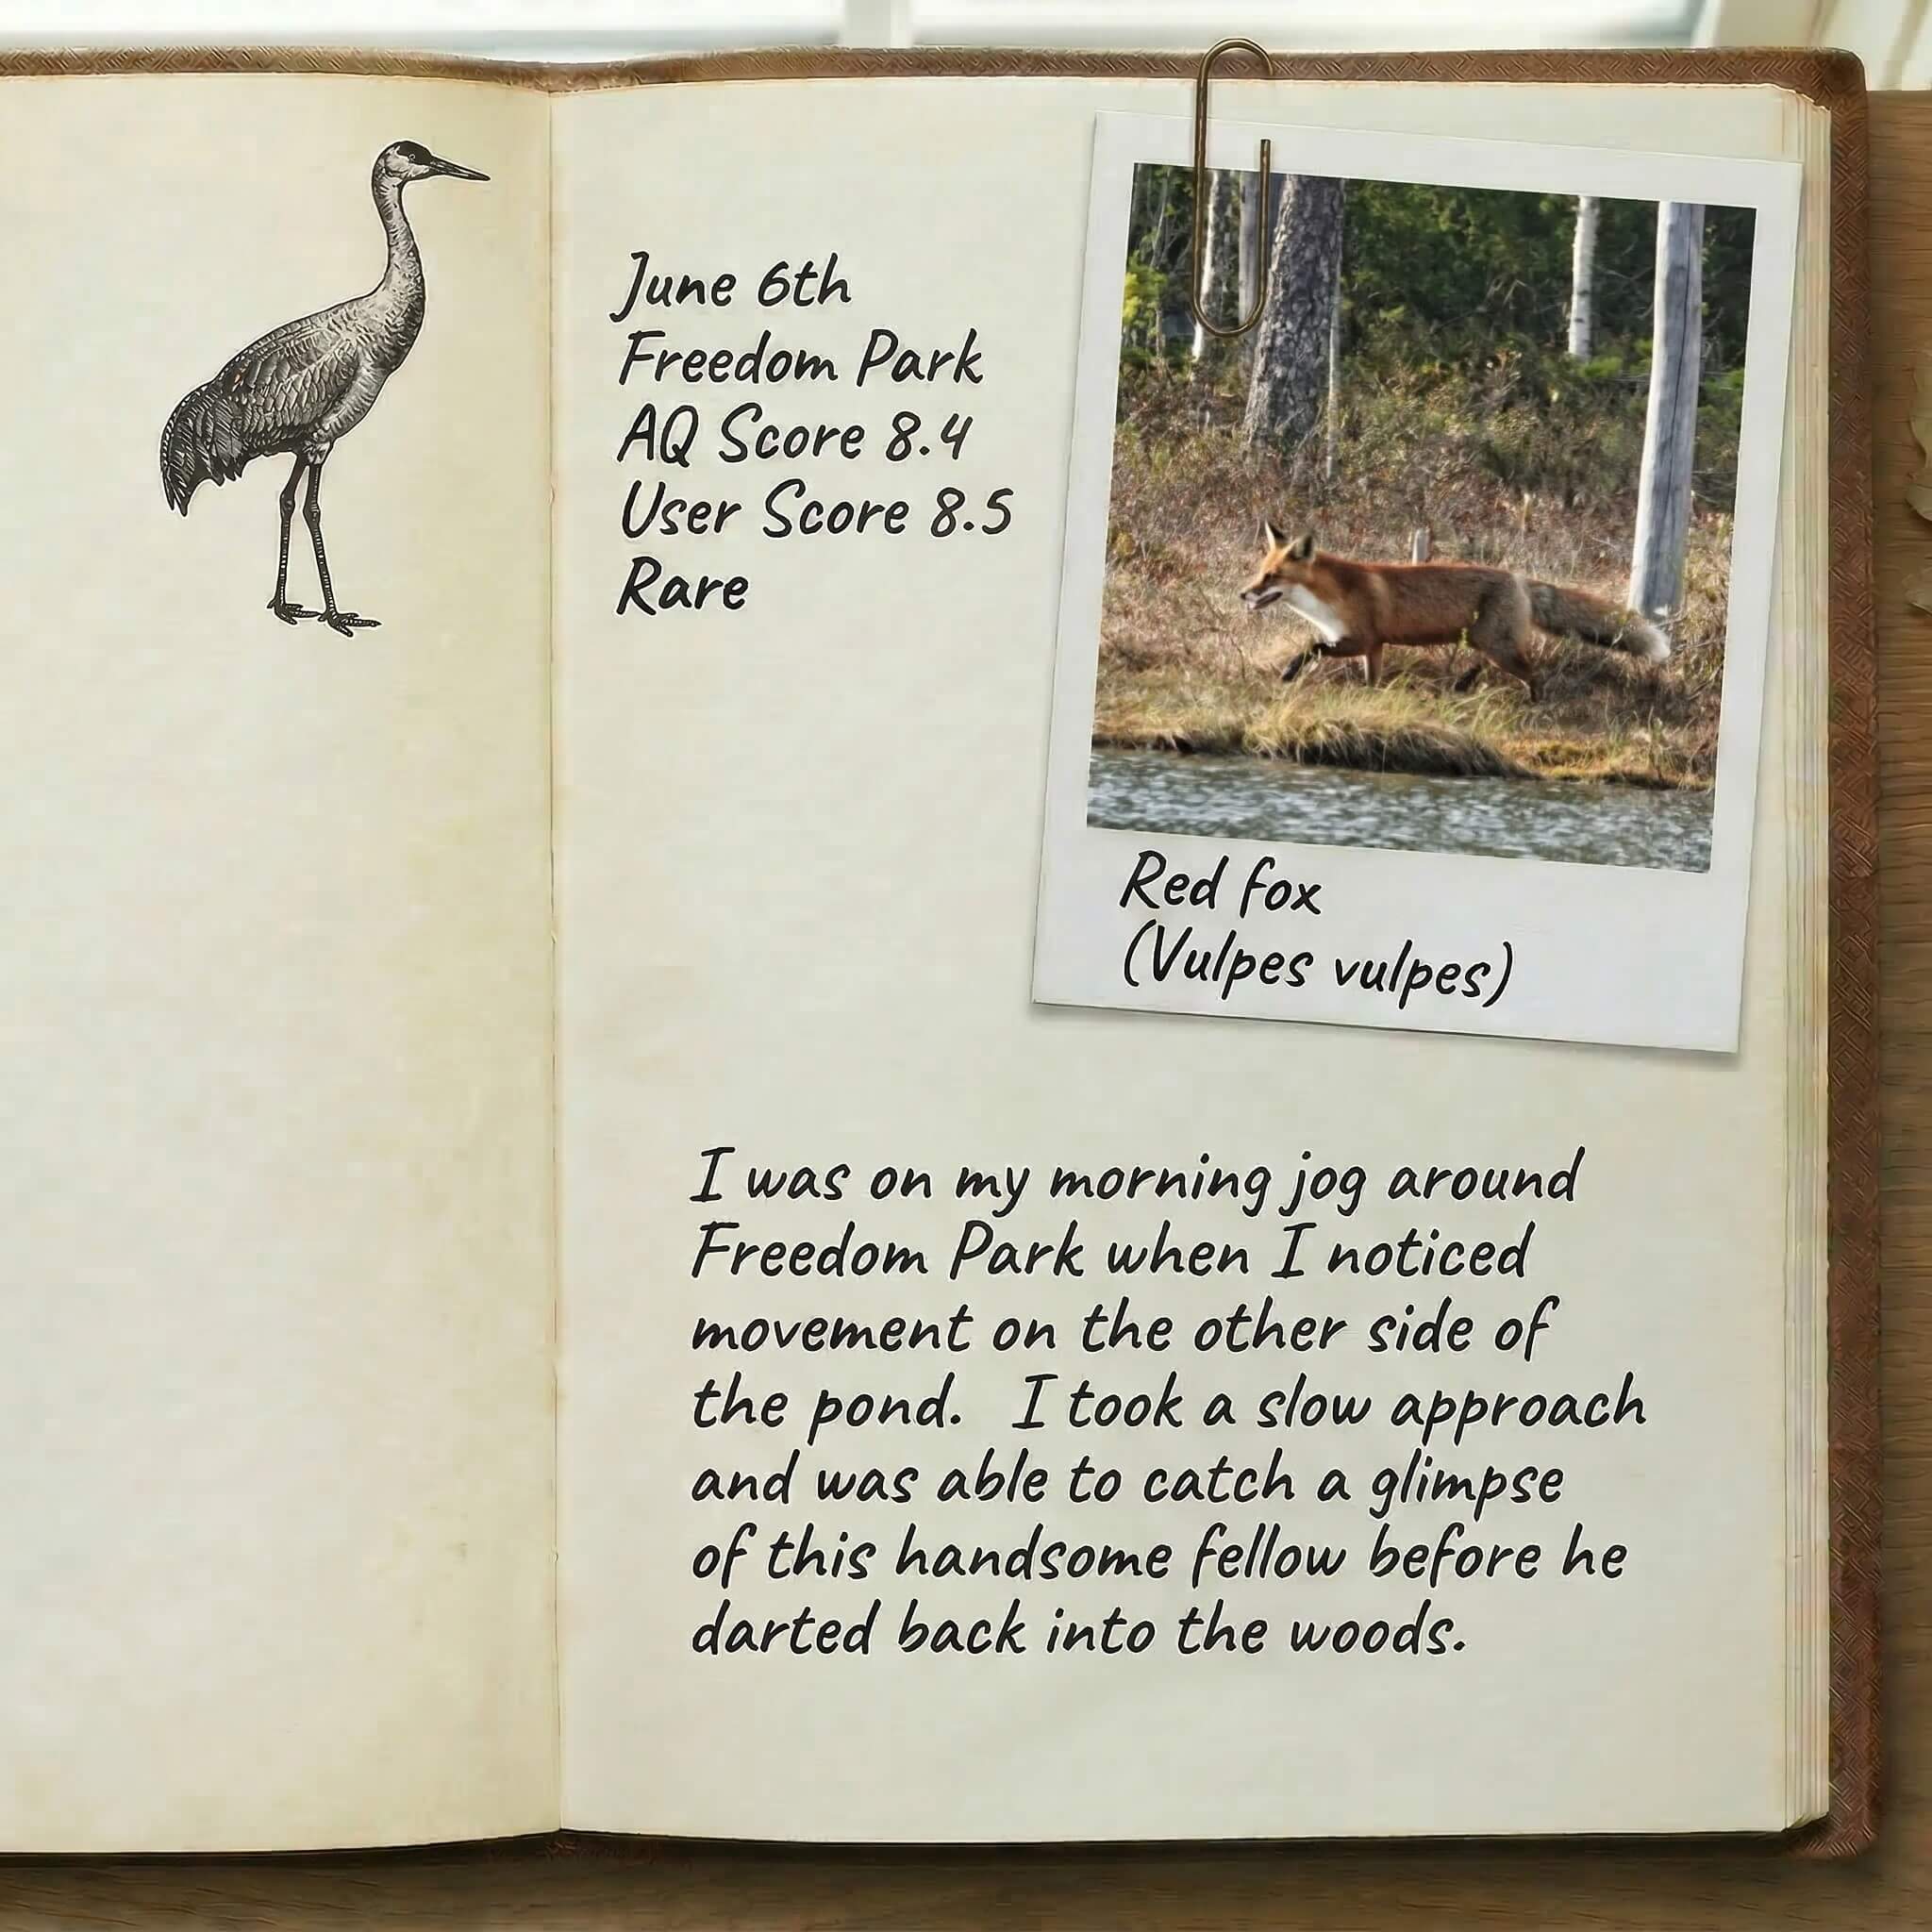 June 6th
Freedom Park
AQ Score 8.4
User Score 8.5
Rare
Red fox
(Vulpes vulpes)
I was on my morning jog around
Freedom Park when I noticed
movement on the other side of
the pond.  I took a slow approach
and was able to catch a glimpse
of this handsome fellow before he
darted back into the woods.